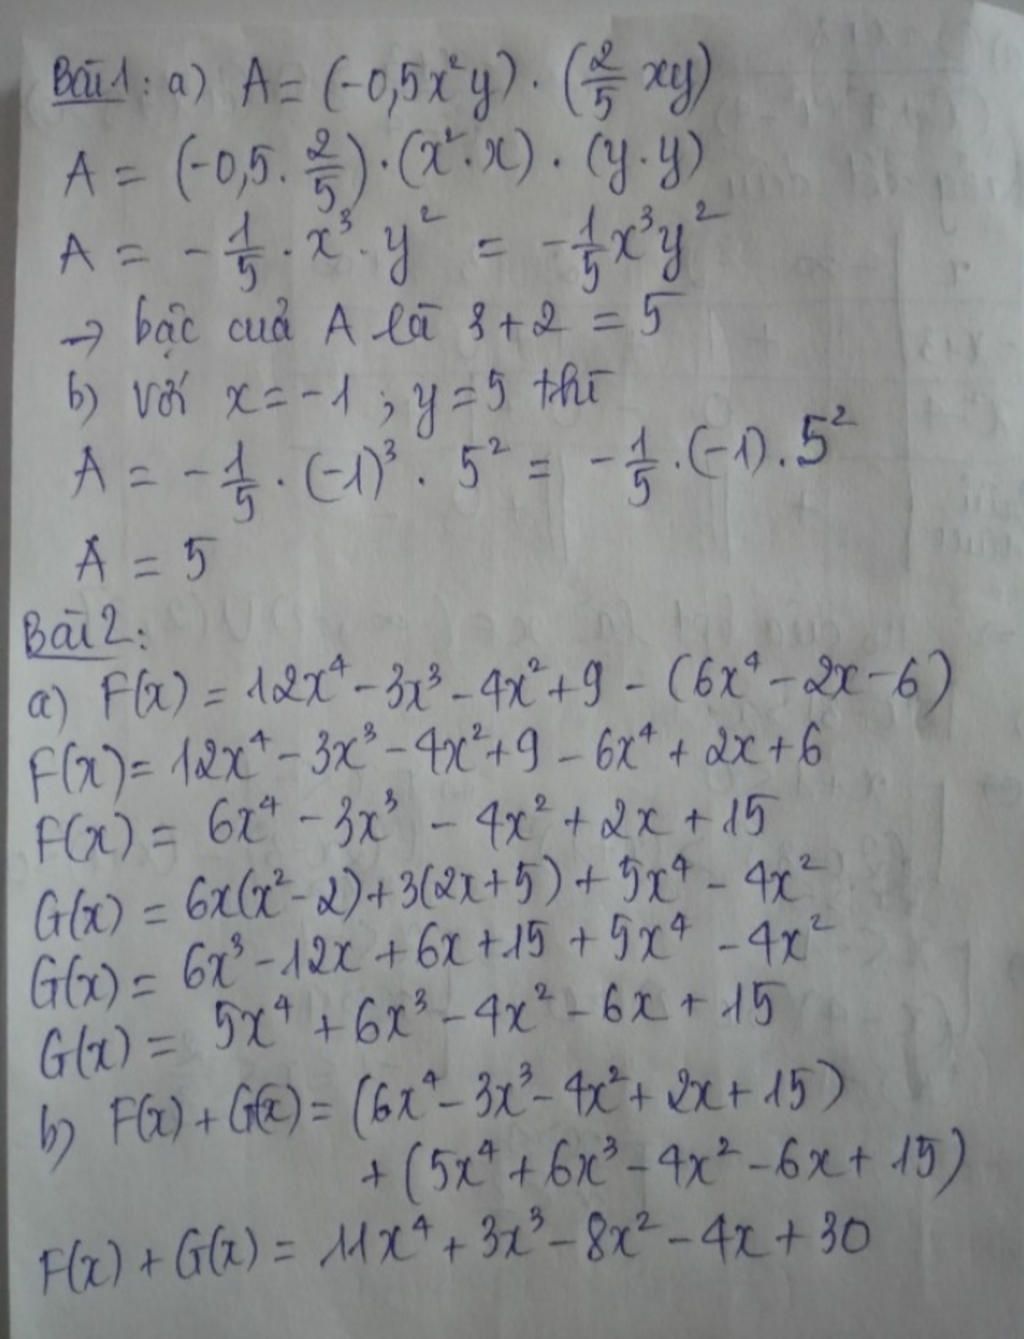 Bài 1: a) A = (-0,5x²y) . (2/5 xy)
A = (-0,5 . 2/5) . (x² . x) . (y . y)
A = - 1/5 . x³ . y² = - 1/5 x³y²
→ bậc của A là 3 + 2 = 5
b) Với x = -1 ; y = 5 thì
A = - 1/5 . (-1)³ . 5² = - 1/5 . (-1) . 5²
A = 5
Bài 2:
a) F(x) = 12x⁴ - 3x³ - 4x² + 9 - (6x⁴ - 2x - 6)
F(x) = 12x⁴ - 3x³ - 4x² + 9 - 6x⁴ + 2x + 6
F(x) = 6x⁴ - 3x³ - 4x² + 2x + 15
G(x) = 6x(x² - 2) + 3(2x + 5) + 5x⁴ - 4x²
G(x) = 6x³ - 12x + 6x + 15 + 5x⁴ - 4x²
G(x) = 5x⁴ + 6x³ - 4x² - 6x + 15
b) F(x) + G(x) = (6x⁴ - 3x³ - 4x² + 2x + 15)
+ (5x⁴ + 6x³ - 4x² - 6x + 15)
F(x) + G(x) = 11x⁴ + 3x³ - 8x² - 4x + 30